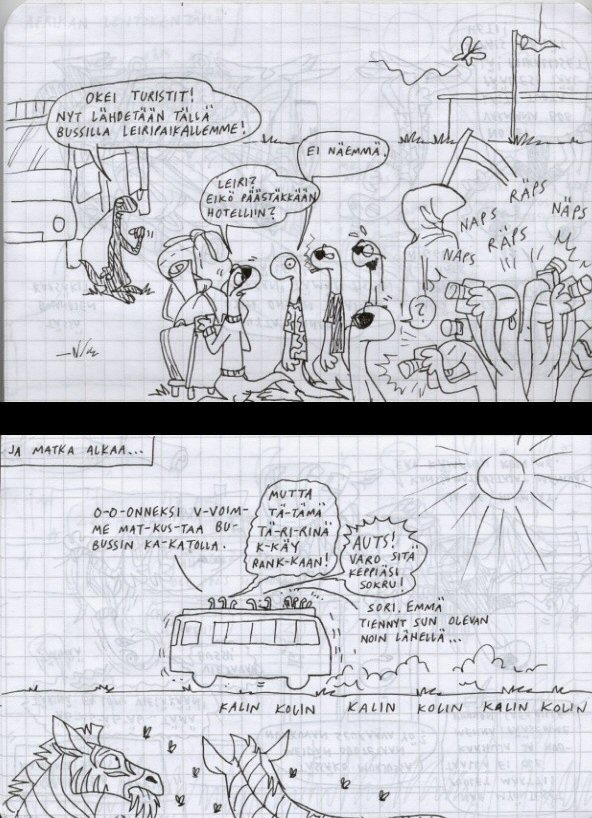 OKEI TURISTIT!
NYT LÄHDETÄÄN TÄLLÄ
BUSSILLA LEIRIPAIKALLEMME!
LEIRI?
EIKÖ PÄÄSTÄKKÄÄN
HOTELLIIN?
EI NÄEMMÄ.
?
NAPS
RÄPS
NÄPS
NAPS
RÄPS
JA MATKA ALKAA...
O-O-ONNEKSI V-VOIM-
ME MAT-KUS-TAA BU-
BUSSIN KA-KATOLLA.
MUTTA
TÄ-TÄMÄ
TÄ-RI-RINÄ
K-KÄY
RANK-KAAN!
AUTS!
VARO SITÄ
KEPPIÄSI
SOKRU!
SORI, EMMÄ
TIENNYT SUN OLEVAN
NOIN LÄHELLÄ...
KALIN KOLIN KALIN KOLIN KALIN KOLIN